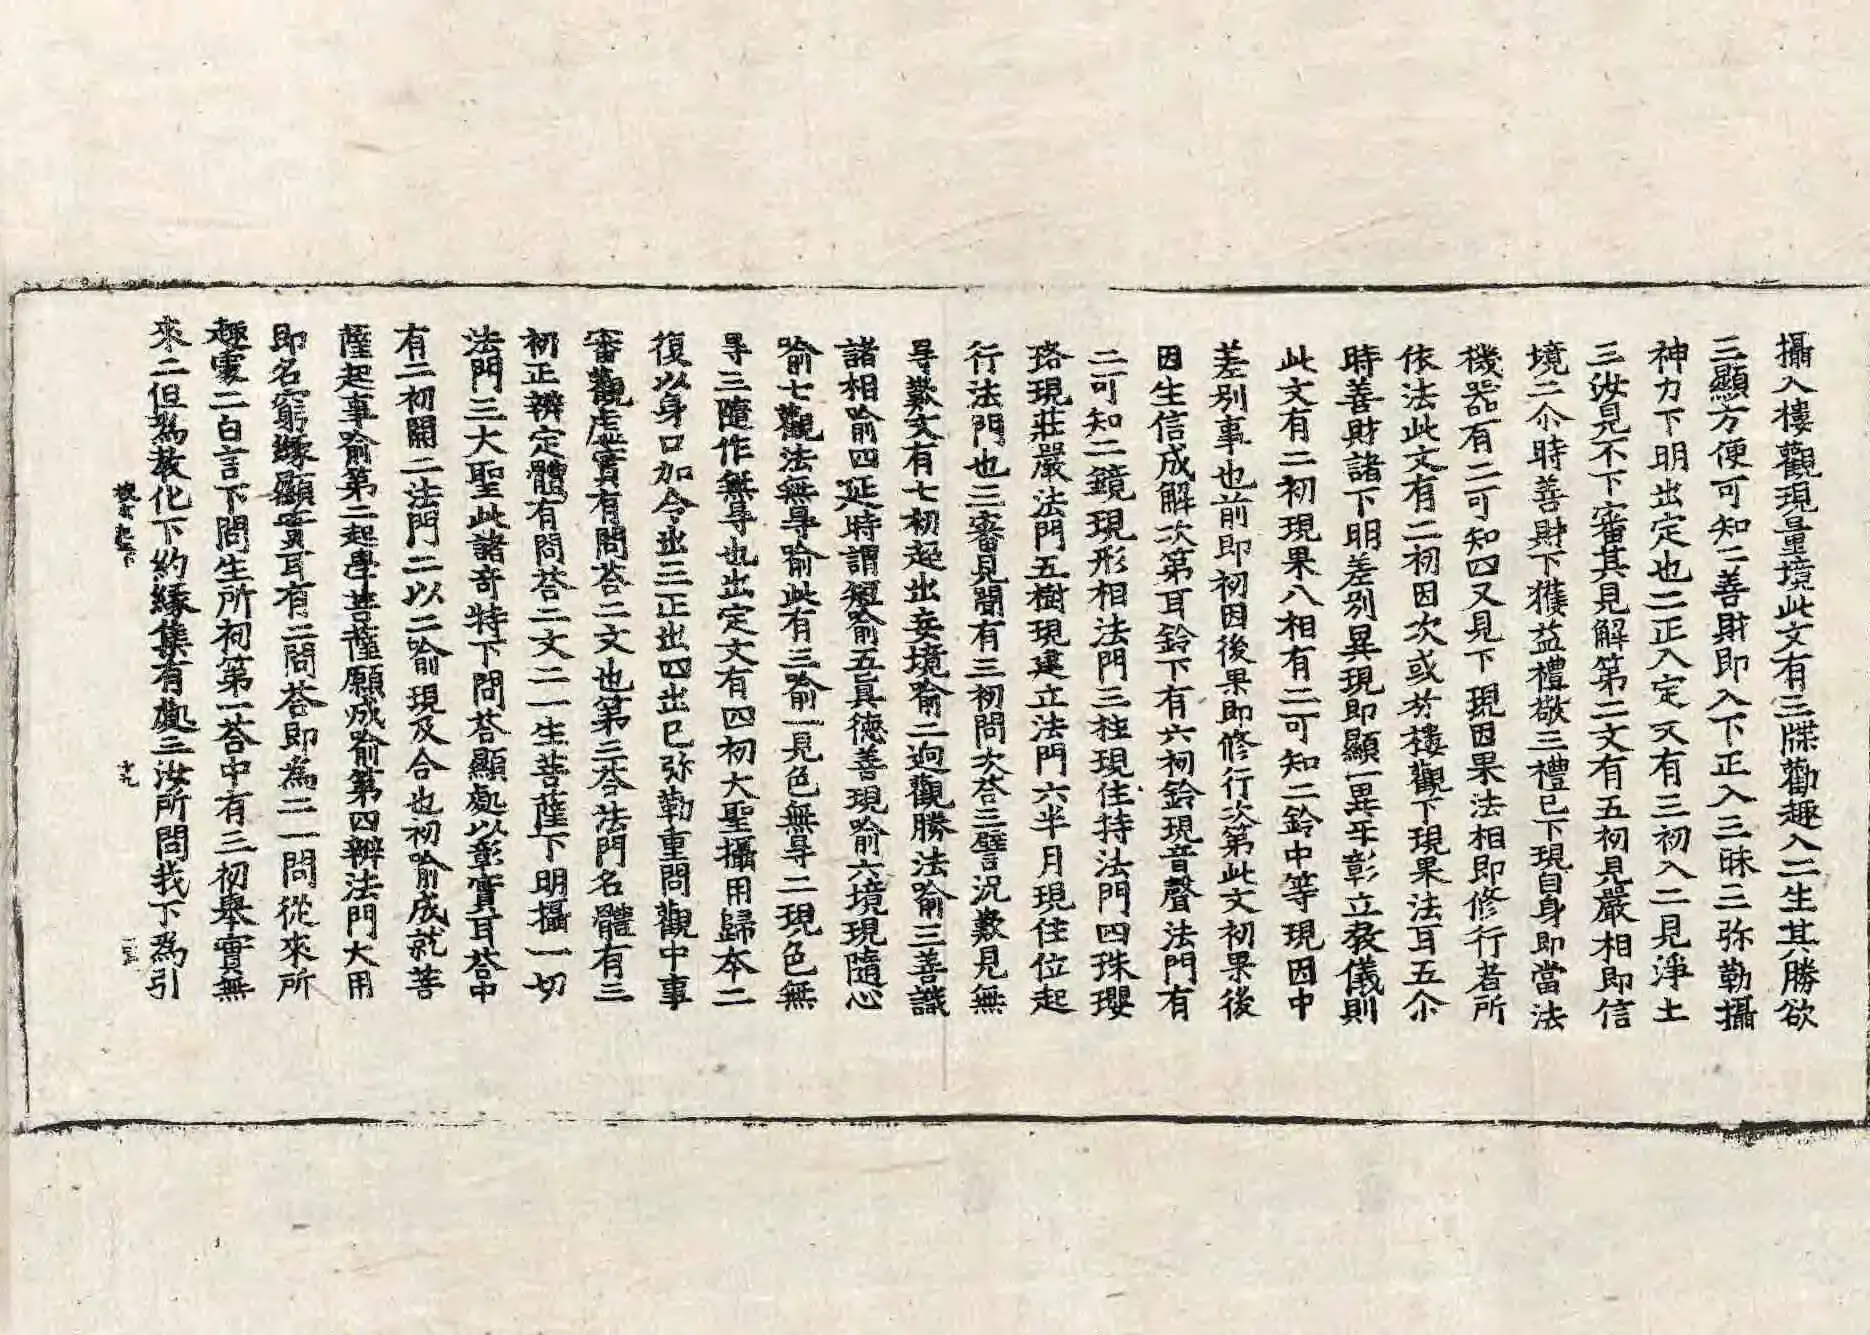 攝入樓觀現量境此文有三牒勸趣入二生其勝欲
三顯方便可知二善財即入下正入三昧三弥勒攝
神力下明出定也二正入定文有三初入二見淨土
三汝見不下審其見解第二文有五初見嚴相即信
境二尒時善財下獲益禮敬三禮已下現自身即當法
機器有二可知四又見下現因果法相即修行者所
依法此文有二初因次或於樓觀下現果法耳五尒
時善財諸下明差別異現即顯一異乐彰立教儀則
此文有二初現果八相有二可知二鈴中等現因中
差別事也前即初因後果即修行次第此文初果後
因生信成解次第耳鈴下有六初鈴現音聲法門有
二可知二鏡現形相法門三柱現住持法門四珠瓔
珞現莊嚴法門五樹現建立法門六半月現住位起
行法門也三審見聞有三初問次荅三譬況歎見無
㝵歎文有七初超出妄境喻二迥觀勝法喻三善識
諸相喻四延時謂短喻五眞德善現喻六境現隨心
喻七觀法無㝵喻此有三喻一見色無㝵二現色無
㝵三隨作無㝵也出定文有四初大聖攝用歸夲二
復以身口加令出三正出四出已弥勒重問觀中事
審觀虛實有問荅二文也第三荅法門名體有三
初正辨定體有問荅二文二一生菩薩下明攝一切
法門三大聖此諸奇特下問荅顯處以彰實耳荅中
有二初開二法門二以二喻現及合也初喻成就菩
薩起事喻第二起學菩薩願成喻第四辨法門大用
即名窮緣顯實耳有二問荅即為二一問從來所
趣處二白言下問生所初第一荅中有三初舉實無
來二但爲教化下約緣集有處三汝所問我下爲引
十九